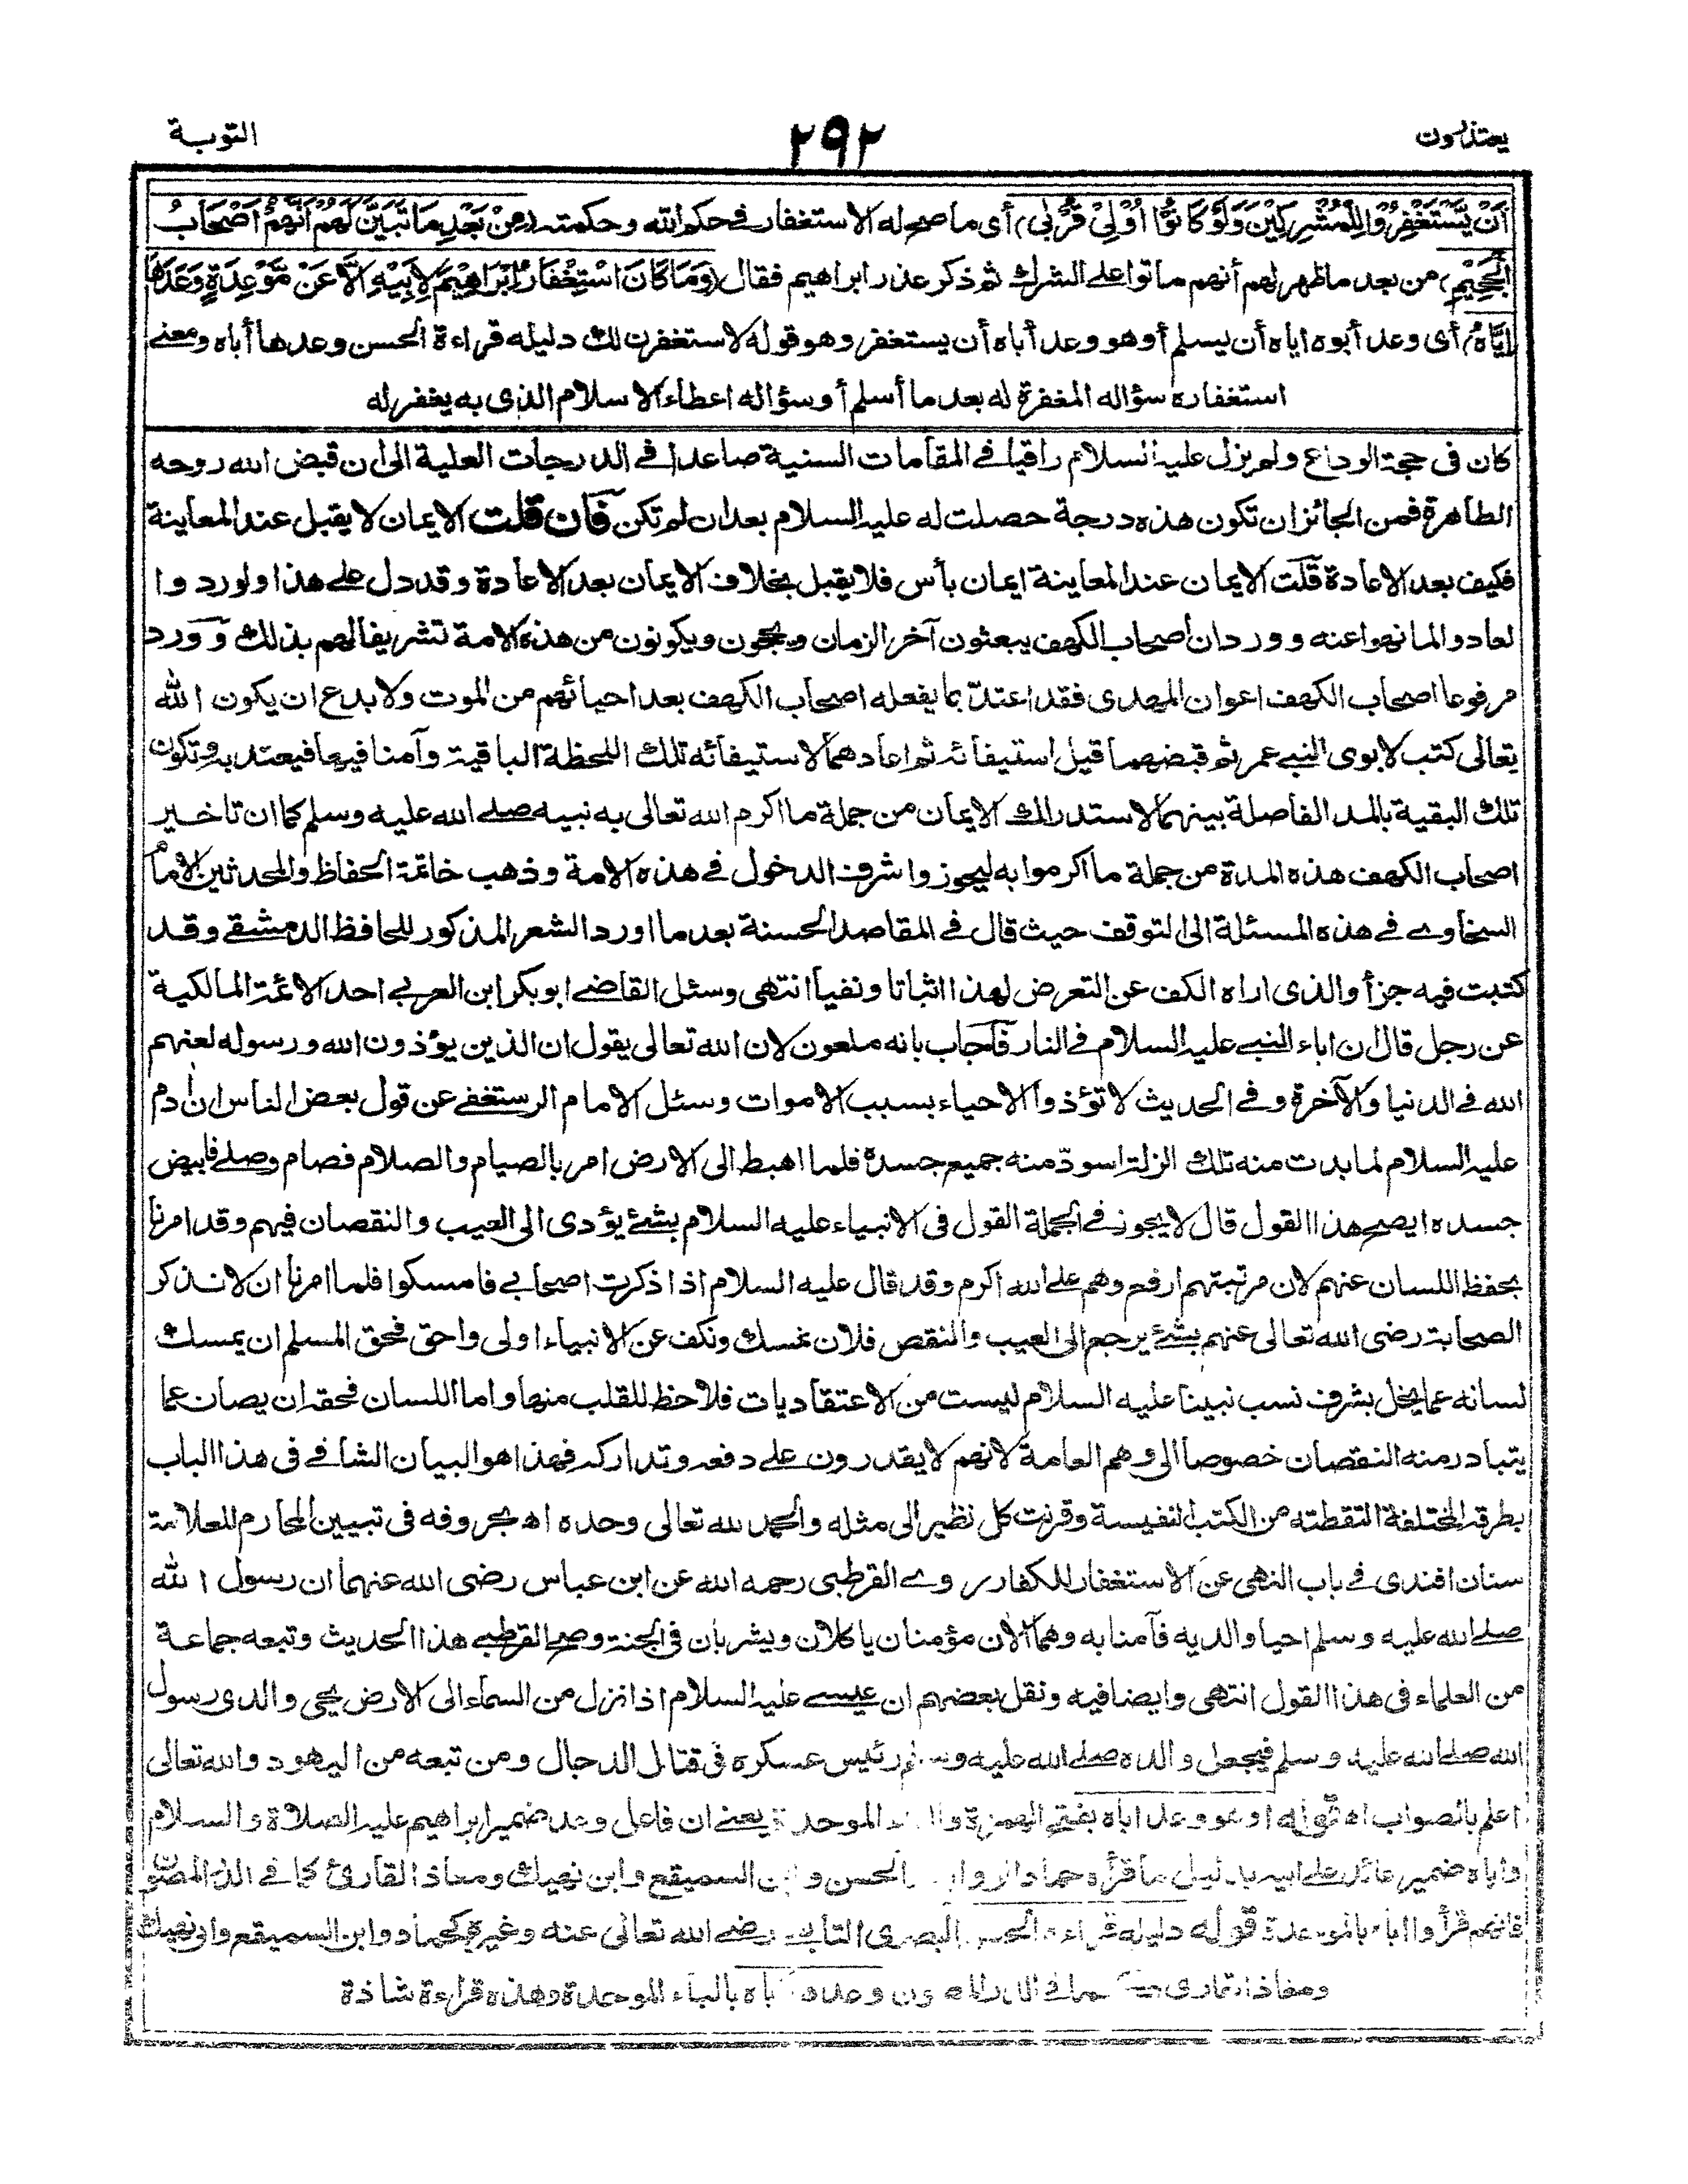 يعتذرون
٢٩٢
التوبة
أَنْ يَّسْتَغْفِرُوْا لِلْمُشْرِكِيْنَ وَلَوْ كَانُوْا اُوْلِيْ قُرْبٰى) أى ما صح له الاستغفار فى حكم الله وحكمته (مِنْ بَعْدِ مَا تَبَيَّنَ لَهُمْ اَنَّهُمْ اَصْحَابُ
الْجَحِيْمِ) من بعد ما ظهر لهم أنهم ماتوا على الشرك ثم ذكر عذر ابراهيم فقال (وَمَا كَانَ اسْتِغْفَارُ اِبْرَاهِيْمَ لِاَبِيْهِ اِلَّا عَنْ مَّوْعِدَةٍ وَعَدَهَا
اِيَّاهُ) أى وعد أبوه اياه أن يسلم أو هو وعد أباه أن يستغفر وهو قوله لاستغفرن لك دليله قراءة الحسن وعدها أباه ومعنى
استغفاره سؤاله المغفرة له بعد ما أسلم أو سؤاله اعطاء الاسلام الذى به يغفر له
كان فى حجة الوداع ولم يزل عليه السلام راقيا فى المقامات السنية صاعدا فى الدرجات العلية الى ان قبض الله روحه
الطاهرة فمن الجائز ان تكون هذه درجة حصلت له عليه السلام بعد ان لم تكن فان قلت الايمان لا يقبل عند المعاينة
فكيف بعد الاعادة قلت الايمان عند المعاينة ايمان بأس فلا يقبل بخلاف الايمان بعد الاعادة وقد دل على هذا ولو ردوا
لعادوا لما نهوا عنه وورد ان أصحاب الكهف يبعثون آخر الزمان ويحجون ويكونون من هذه الامة تشريفا لهم بذلك وورد
مرفوعا اصحاب الكهف اعوان المهدى فقد اعتدّ بما يفعله اصحاب الكهف بعد احيائهم من الموت ولا بدع ان يكون الله
تعالى كتب لابوى النبى عمر ثم قبضهما قبل استيفائه ثم اعادهما لاستيفائه تلك اللحظة الباقية وآمنا فيها فيعتد به وتكون
تلك البقية بالمد الفاصلة بينهما لاستدراك الايمان من جملة ما اكرم الله تعالى به نبيه صلى الله عليه وسلم كما ان تاخير
اصحاب الكهف هذه المدة من جملة ما اكرموا به ليحوزوا شرف الدخول فى هذه الامة وذهب خاتمة الحفاظ والمحدثين الامام
السخاوى فى هذه المسئلة الى التوقف حيث قال فى المقاصد الحسنة بعد ما اورد الشعر المذكور للحافظ الدمشقى وقد
كتبت فيه جزأ والذى اراه الكف عن التعرض لهذا اثباتا ونفيا انتهى وسئل القاضى ابو بكر ابن العربى احد الائمة المالكية
عن رجل قال ان اباء النبى عليه السلام فى النار فأجاب بانه ملعون لان الله تعالى يقول ان الذين يؤذون الله ورسوله لعنهم
الله فى الدنيا والآخرة وفى الحديث لا تؤذوا الاحياء بسبب الاموات وسئل الامام الرستغفى عن قول بعض الناس ان أدم
عليه السلام لما بدت منه تلك الزلة اسودّ منه جميع جسدة فلما اهبط الى الارض امر بالصيام والصلام فصام وصلى فابيض
جسده ايصح هذا القول قال لا يجوز فى الجملة القول فى الانبياء عليه السلام بشئ يؤدى الى العيب والنقصان فيهم وقد امرنا
بحفظ اللسان عنهم لان مرتبتهم ارفع وهم على الله اكرم وقد قال عليه السلام اذا ذكرت اصحابى فامسكوا فلما امرنا ان لا نذكر
الصحابة رضى الله تعالى عنهم بشئ يرجع الى العيب والنقص فلان نمسك ونكف عن الانبياء اولى واحق فحق المسلم ان يمسك
لسانه عما يخل بشرف نسب نبينا عليه السلام ليست من الاعتقاديات فلا حظ للقلب منها واما اللسان فحقه ان يصان عما
يتبادر منه النقصان خصوصا الى وهم العامة لانهم لا يقدرون على دفعه وتداركه فهذا هو البيان الشافى فى هذا الباب
بطرقه المختلفة التقطته من الكتب النفيسة وقرنت كل نظير الى مثله والحمد لله تعالى وحده اه بحروفه فى تبيين المحارم للعلامة
سنان افندى فى باب النهى عن الاستغفار للكفار روى القرطبى رحمه الله عن ابن عباس رضى الله عنهما ان رسول الله
صلى الله عليه وسلم احيا والديه فآمنا به وهما الان مؤمنان ياكلان ويشربان فى الجنة وصح القرطبى هذا الحديث وتبعه جماعة
من العلماء فى هذا القول انتهى وايضا فيه ونقل بعضهم ان عيسى عليه السلام اذا نزل من السماء الى الارض يحى والدى رسول
الله صلى الله عليه وسلم فيجعل والده صلى الله عليه وسلم رئيس عسكره فى قتال الدجال ومن تبعه من اليهود والله تعالى
اعلم بالصواب اه قوله او هو وعد اباه بفتح الهمزة الموحدة يعنى ان فاعل وعد ضمير ابراهيم عليه الصلاة والسلام
واباه ضمير عائد على ابيه بدليل ما قرأه حماد الراوية الحسن وابن السميقع وابن نهيك ومعاذ القارئ كما فى الدر المصون
فانهم قرأوا اباه بالموحدة قوله دليله قراءة الحسن البصرى التابعى رضى الله تعالى عنه وغيره كحماد وابن السميقع وابن نهيك
ومعاذ القارى كما فى الدر المصون وعدها أباه بالباء الموحدة وهذه قراءة شاذة